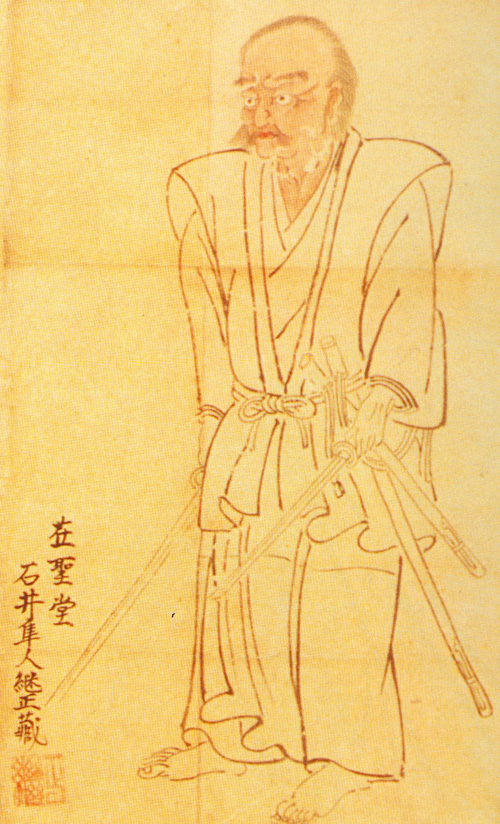 聖堂
石井隼人継正藏